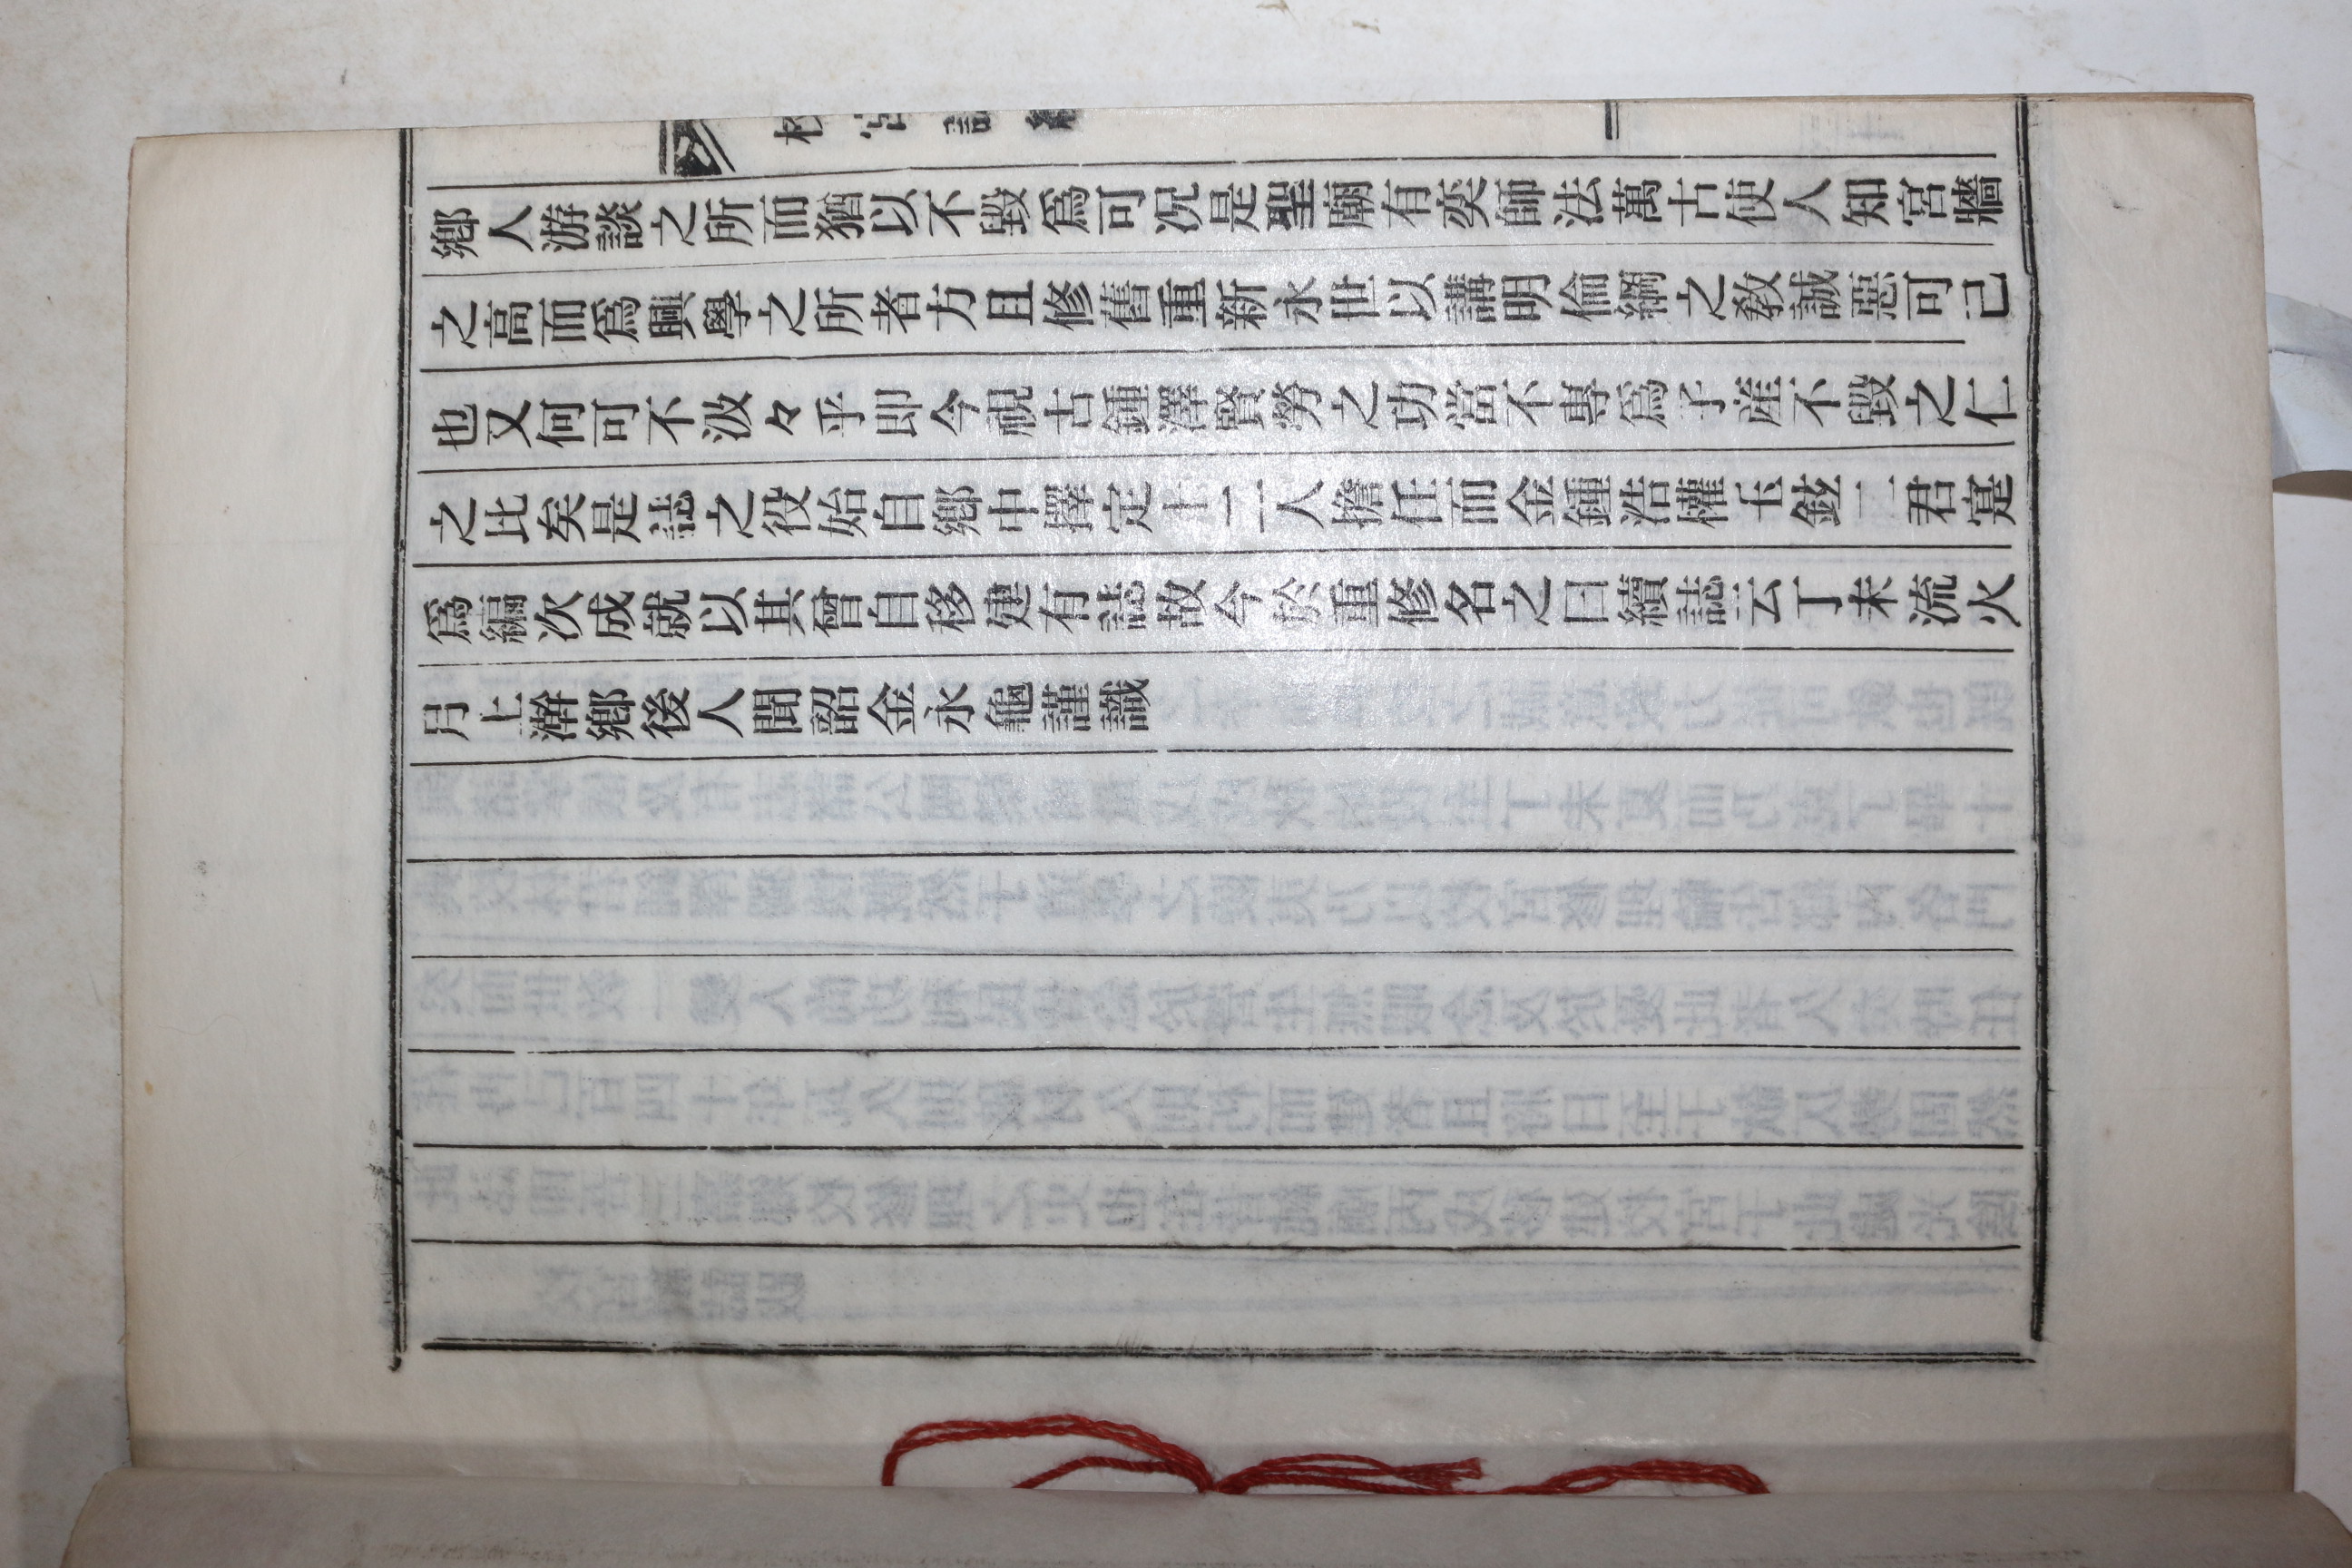 鄉人游談之所而猶以不毀爲可况是聖廟有奕師法萬古使人知宮牆
之高而爲興學之所者方且修舊重新永世以講明倫綱之敎誠惡可已
也又何可不汲々乎即今視古鍾澤賢勞之功當不專爲子產不毀之仁
之比矣是誌之役始自鄉中擇定十二人擔任而金鍾浩權玉鉉二君寔
爲編次成就以其曾自移建有誌故今於重修名之曰續誌云丁未流火
月上澣鄉後人聞韶金永龜謹識